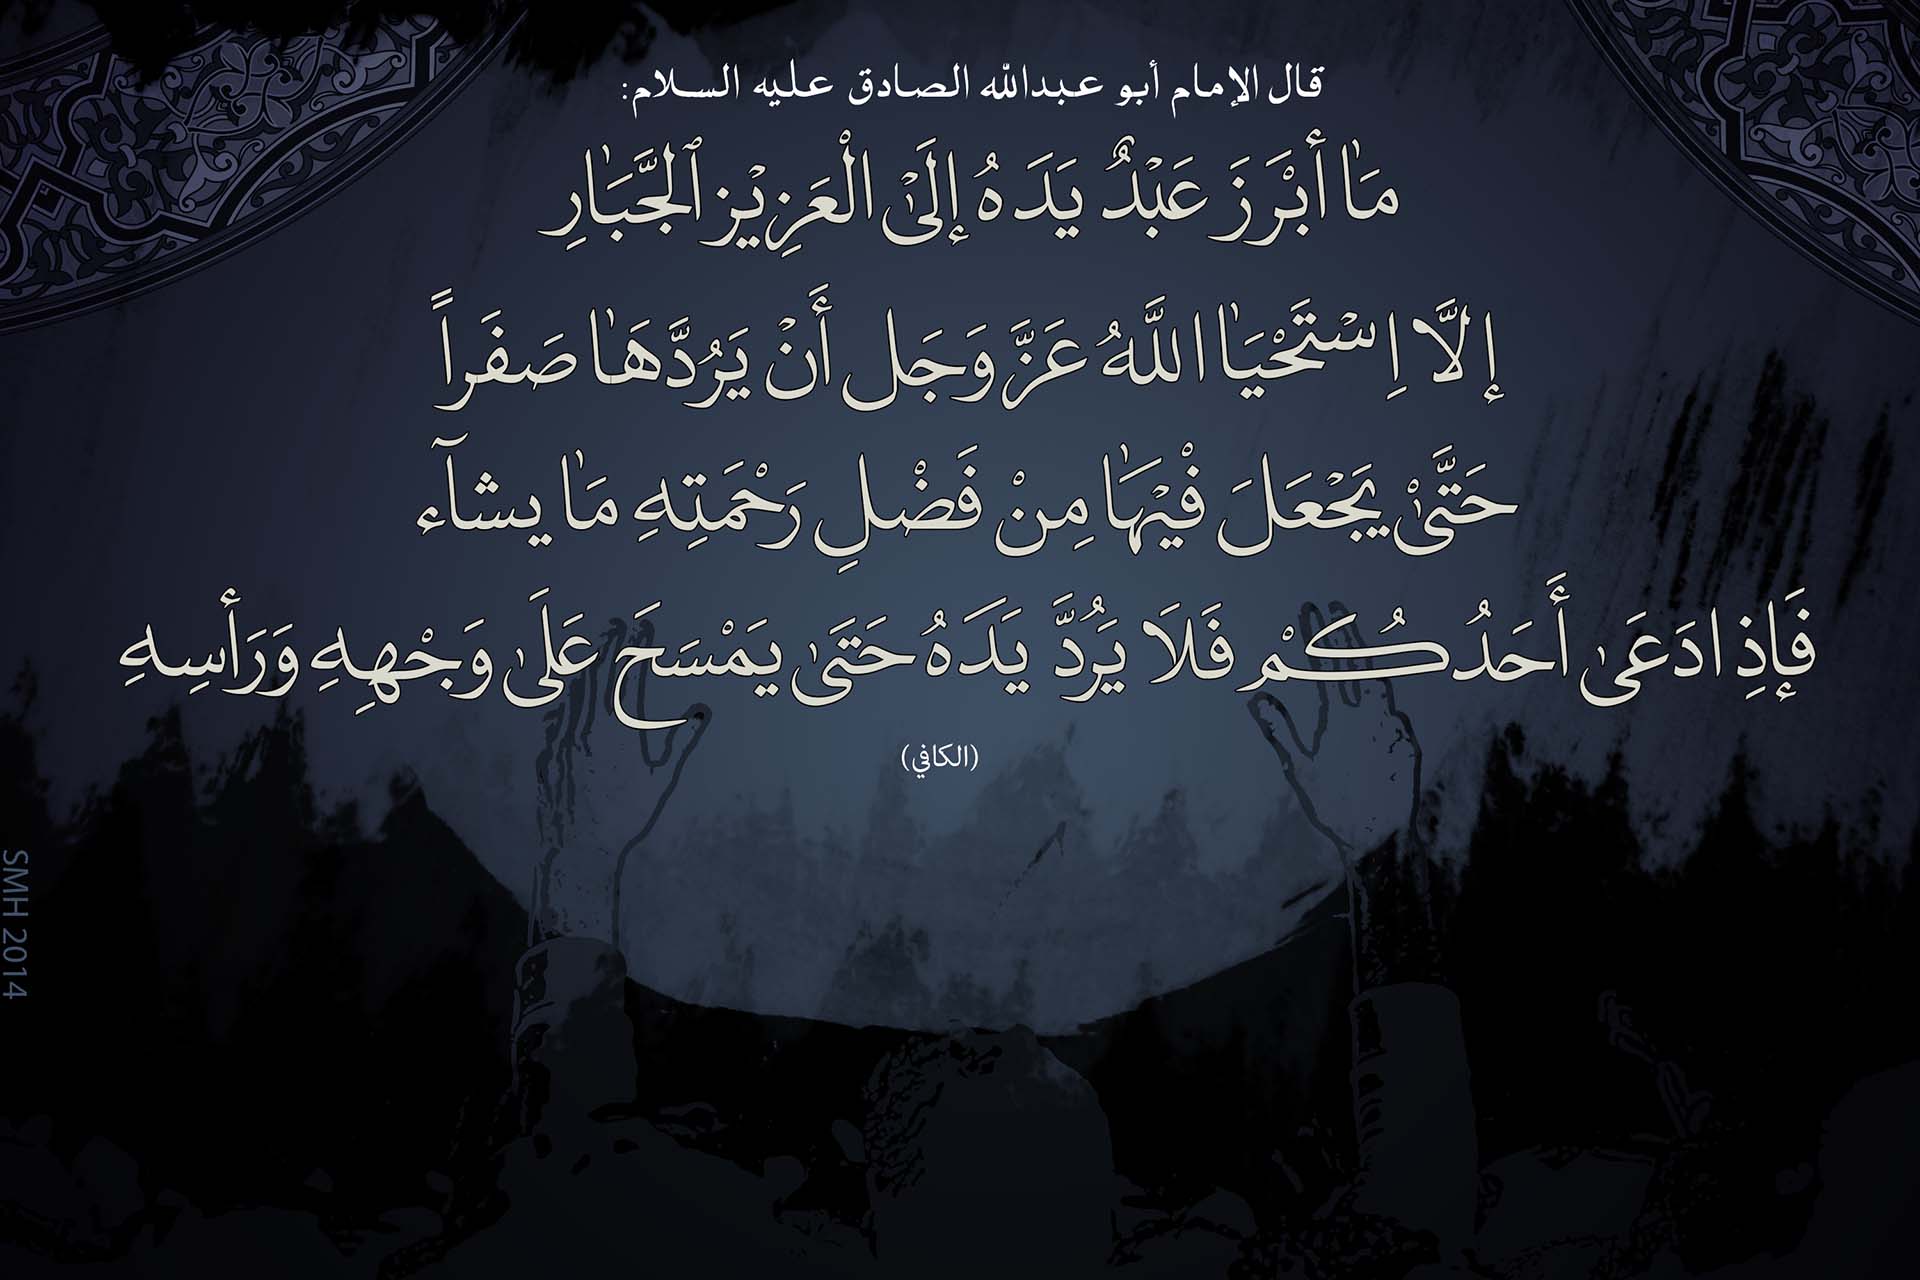 قال الإمام أبو عبدالله الصادق عليه السلام:
مَا أَبْرَزَ عَبْدٌ يَدَهُ إِلَىٰ الْعَزِيْزِ ٱلْجَّبَارِ
إِلَّا اِسْتَحْيَا اللَّهُ عَزَّ وَجَل أَنْ يَرُدَّهَا صَفَراً
حَتَّىٰ يَجْعَلَ فْيْهَا مِنْ فَضْلِ رَحْمَتِهِ مَا يشآء
فَإِذِ ادَعَىٰ أَحَدُكُمْ فَلَا يَرُدَّ يَدَهُ حَتَىٰ يَمْسَحَ عَلَىٰ وَجْهِهِ وَرَأسِهِ
(الكافي)
SMH 2014